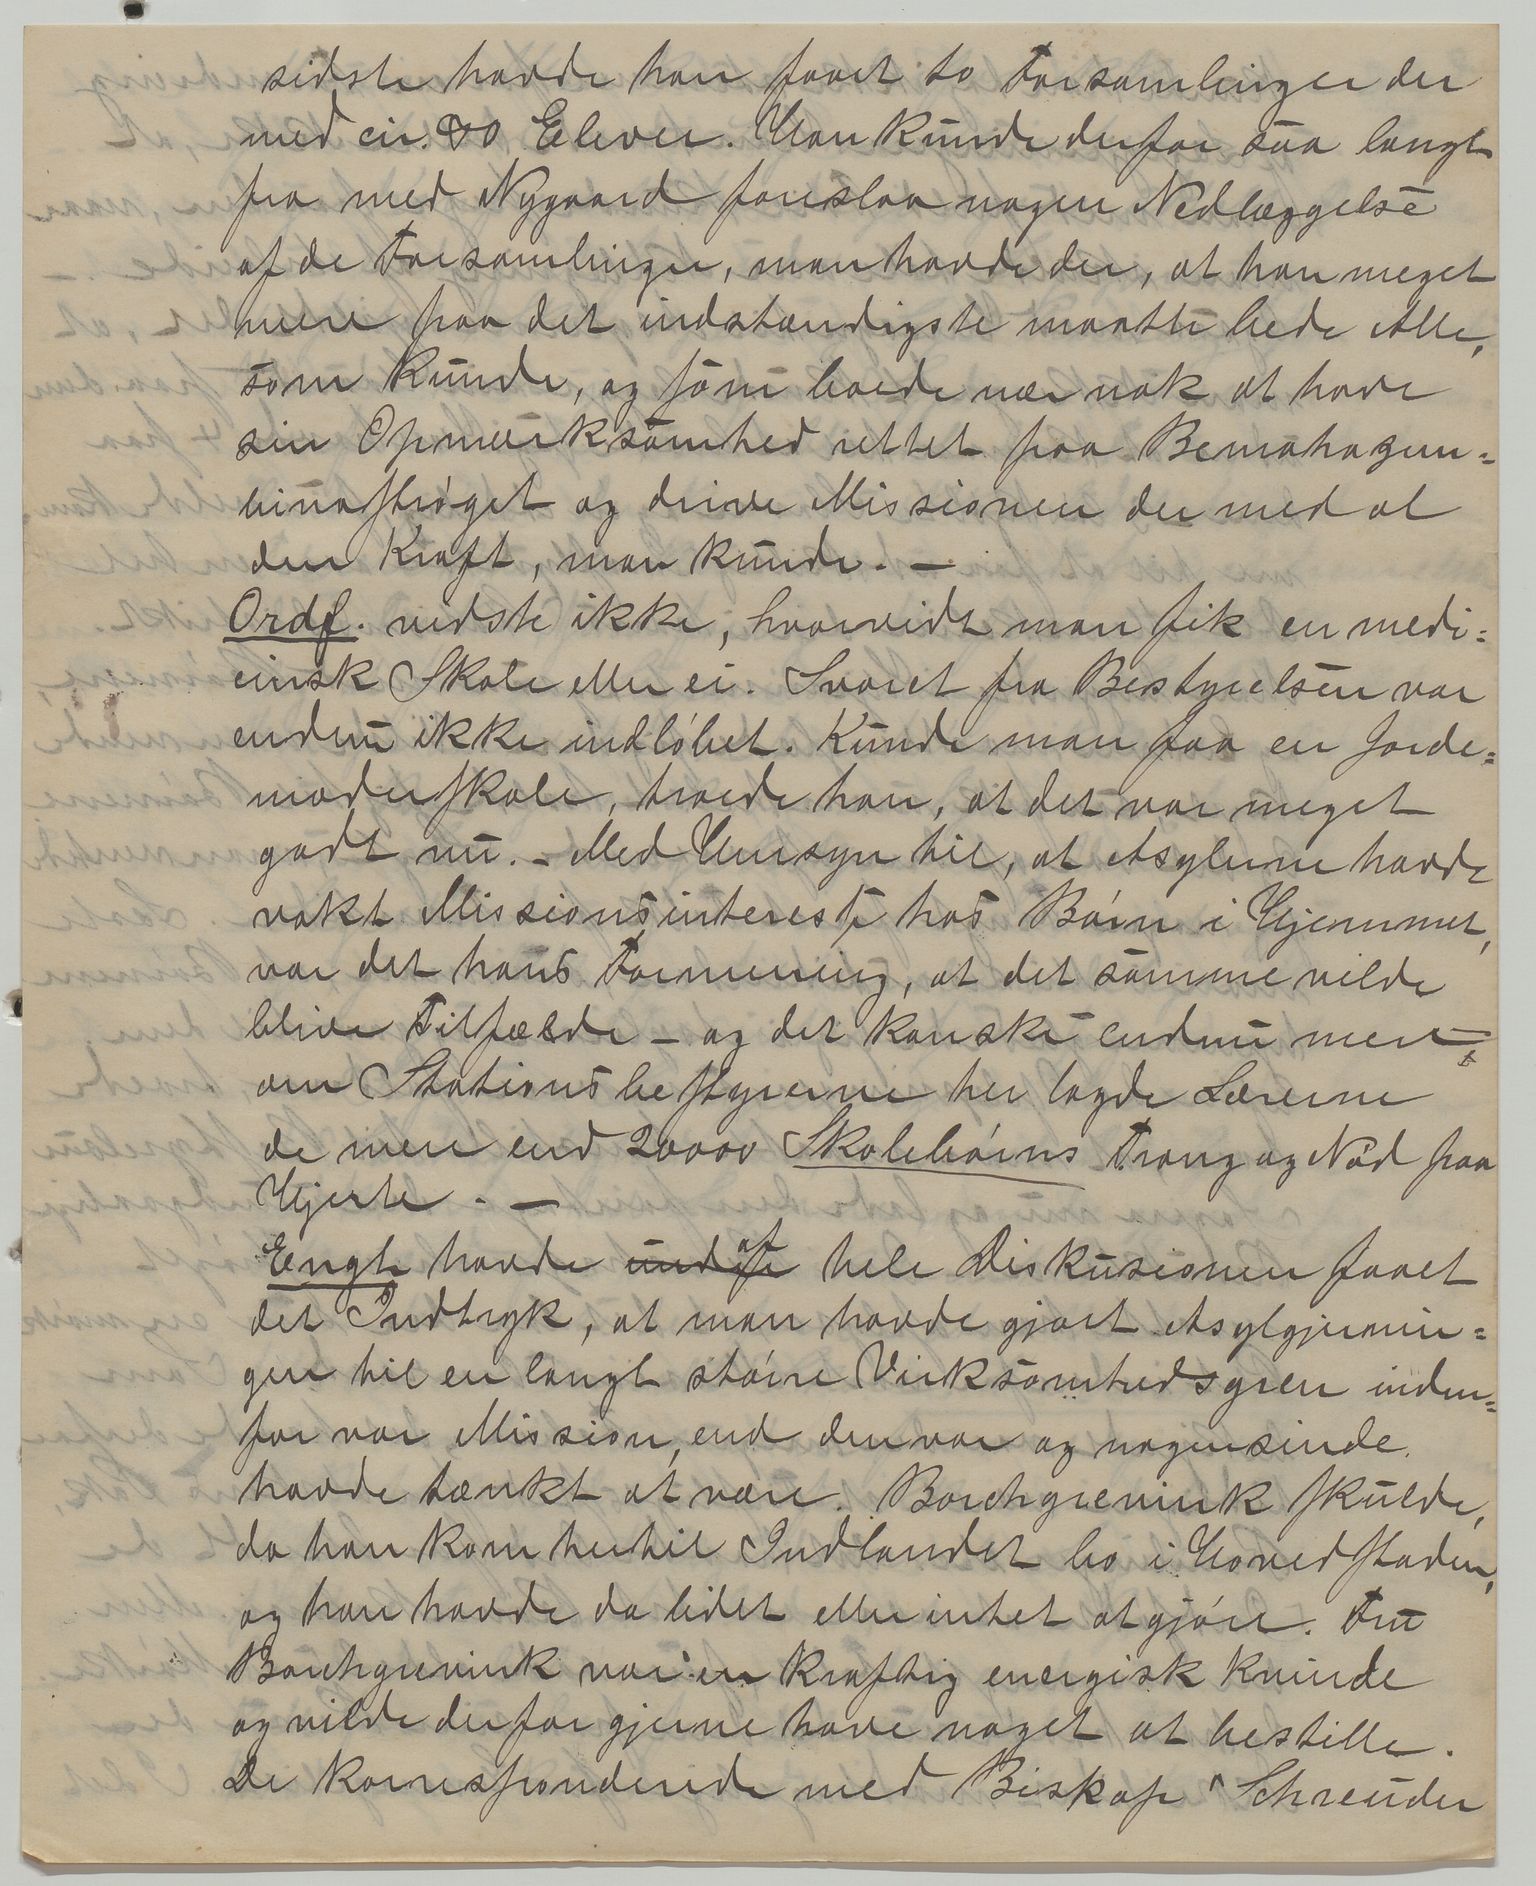 sidste havde han faaet to Forsamlinger der
med cir. 80 Elever. Han kunde derfor saa langt
fra med Nygaard foreslaa nogen Nedlæggelse
af de Forsamlinger, man havde der, at han meget
mere paa det indstændigste maatte bede Alle,
som kunde, og som boede nær nok at have
sin Opmærksomhed rettet paa Bemahazem=
binastrøget og drive Missionen der med al
den Kraft, man kunde. —
Ordf. vidste ikke, hvorvidt man fik en medi=
cinsk Skole eller ei. Svaret fra Bestyrelsen var
endnu ikke indløbet. Kunde man faa en Jorde=
moderskole, troede han, at det var meget
godt nu. – Med Hensyn til, at Asylerne havde
vakt Missionsinteresse hos Børn i Hjemmet,
var det hans Formening, at det samme vilde
blive Tilfælde – og det kanske endnu mere –,
om Stationsbestyrerne her lagde Lærerne
de mere end 20000 Skolebørns Trang og Nød paa
Hjerte. —
Engh havde af hele Diskusionen faaet
det Indtryk, at man havde gjort Asylgjernin=
gen til en langt større Virksomhedsgren inden=
for vor Mission, end den var og nogensinde
havde tænkt at være. Borchgrevink skulde,
da han kom hertil Indlandet bo i Hovedstaden,
og han havde da lidet eller intet at gjøre. Fru
Borchgrevink var en kraftig energisk Kvinde
og vilde derfor gjerne have noget at bestille.
De korresponderede med Biskop Schreuder